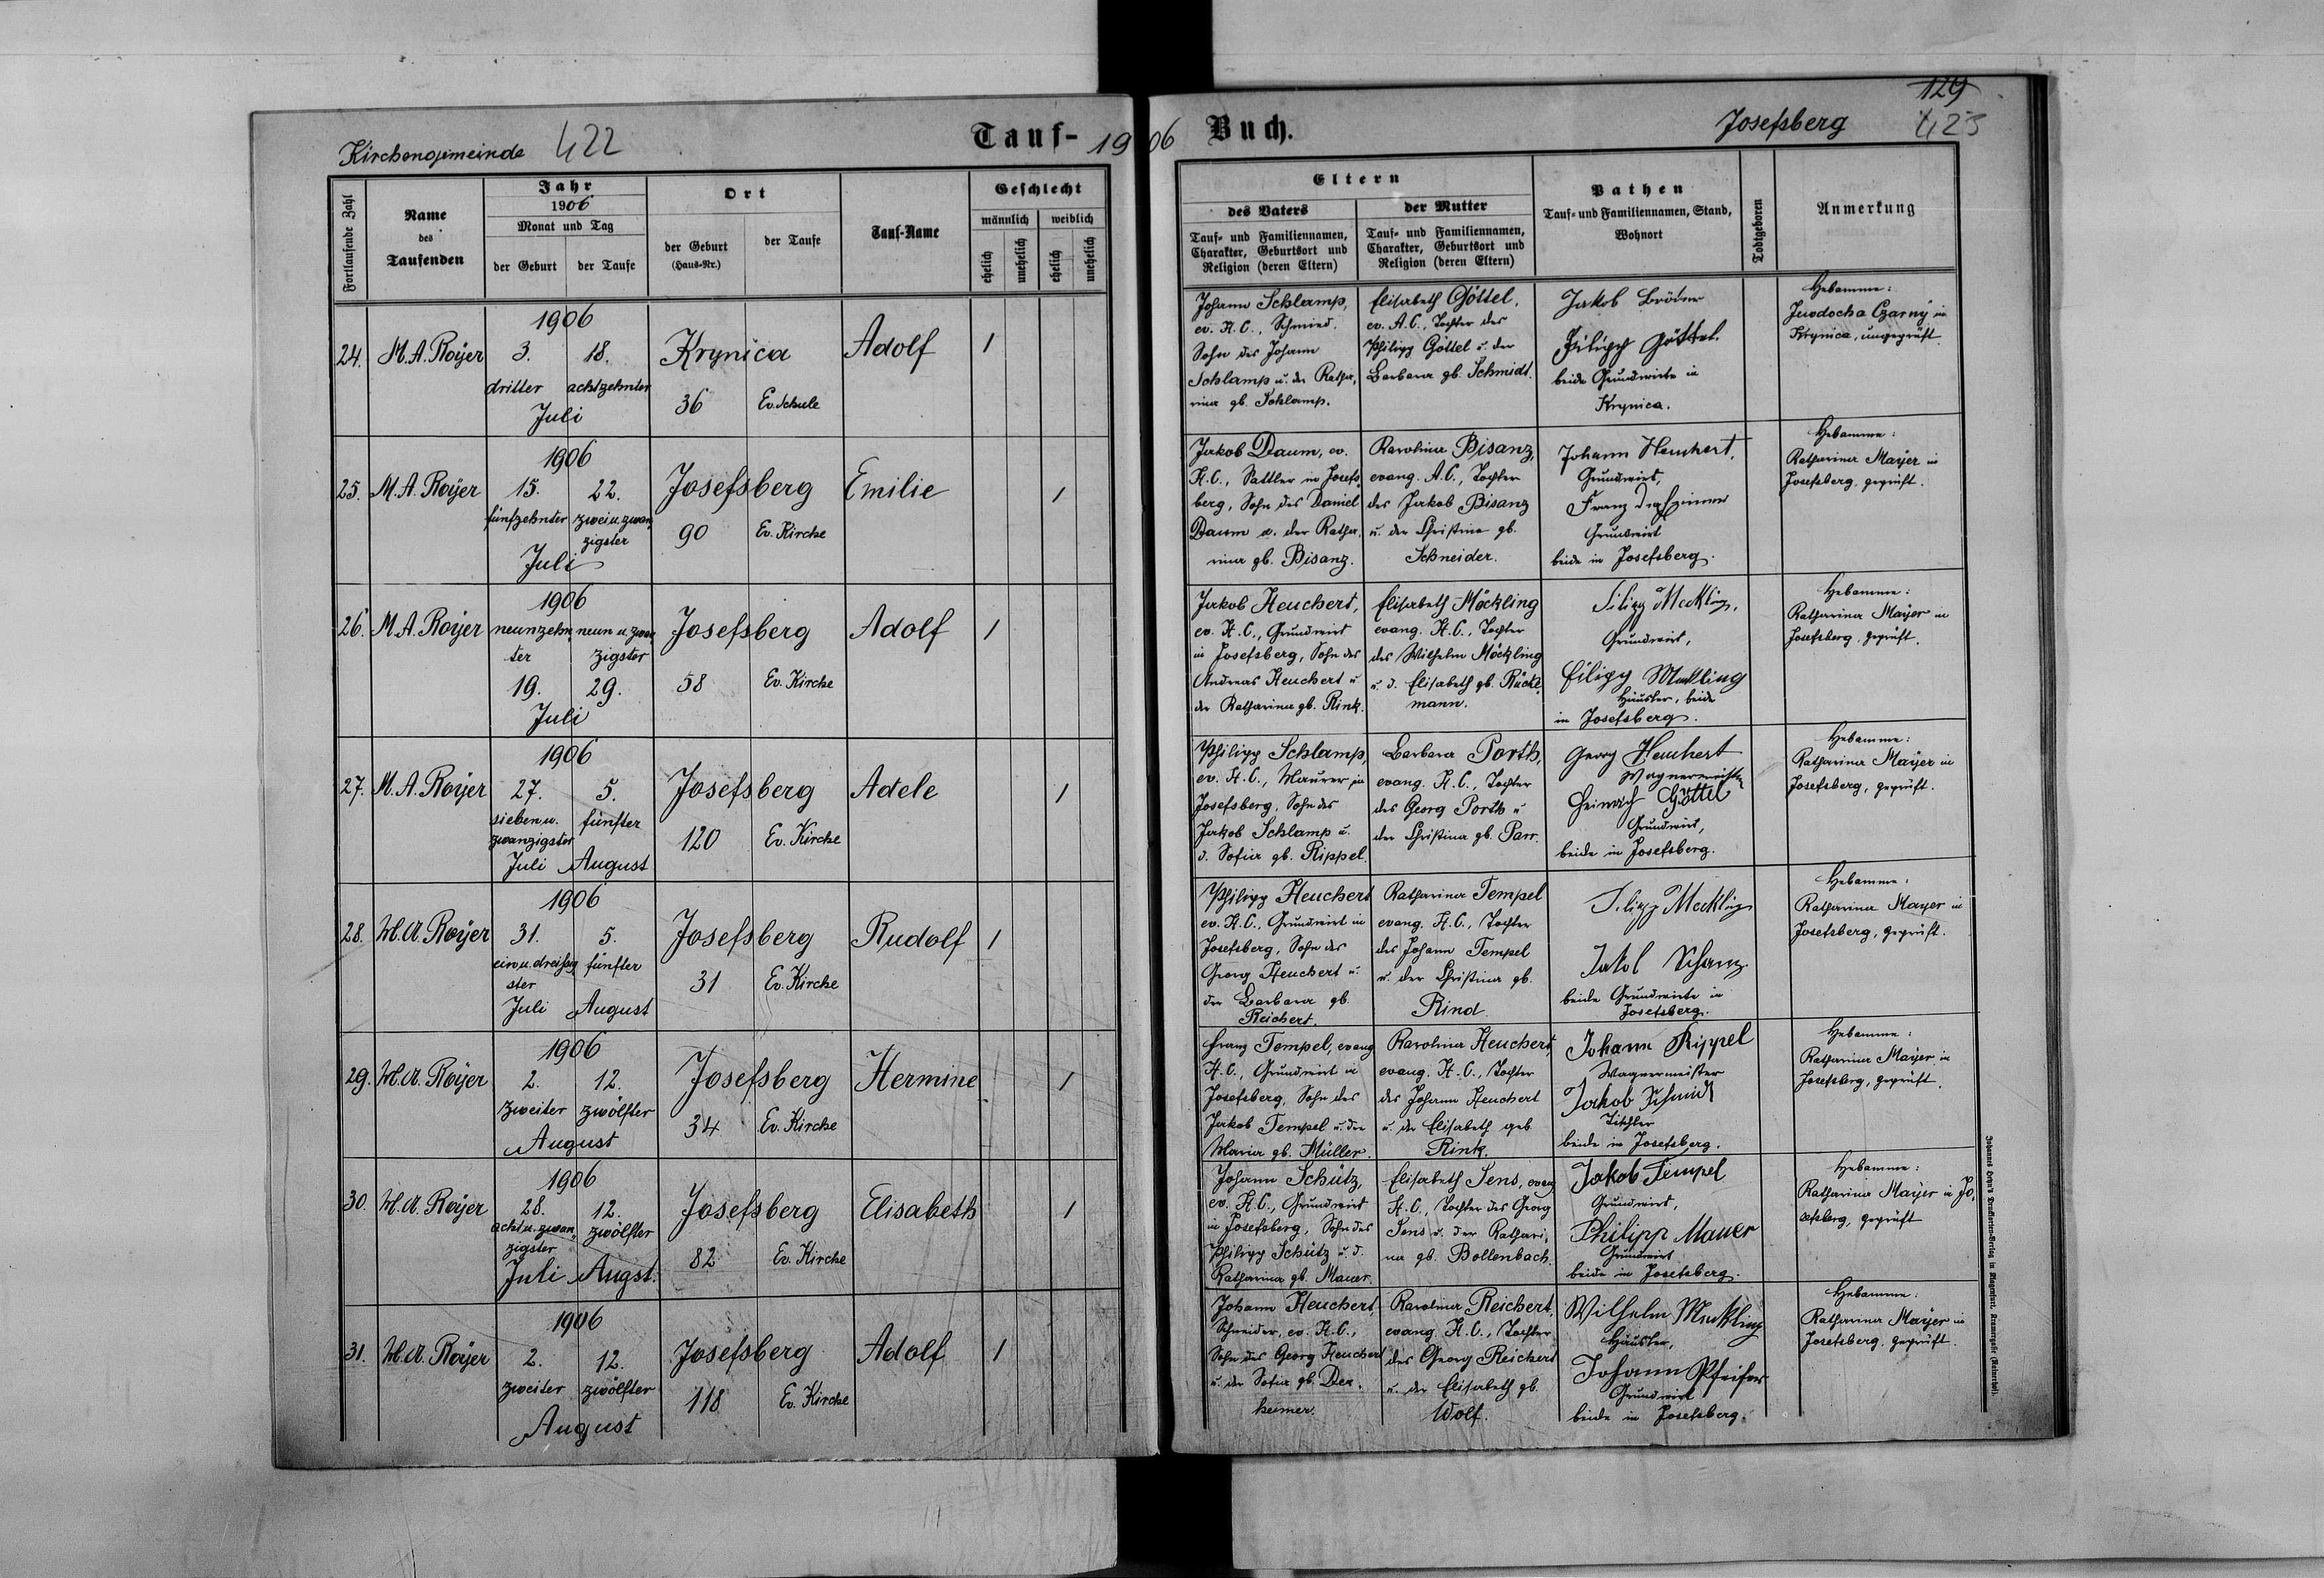 Kirchengemeinde 422
Tauf- 1906 Buch.
Josefsberg
129
423
Fortlaufende Zahl
Name des Taufenden
Jahr 1906
Monat und Tag
der Geburt
der Taufe
Ort
der Geburt (Haus-Nr.)
der Taufe
Tauf-Name
Geschlecht
männlich
weiblich
ehelich
unehelich
ehelich
unehelich
Eltern
des Vaters
Tauf- und Familiennamen,
Charakter, Geburtsort und
Religion (deren Eltern)
der Mutter
Tauf- und Familiennamen,
Charakter, Geburtsort und
Religion (deren Eltern)
Pathen
Tauf- und Familiennamen, Stand,
Wohnort
Todtgeboren
Anmerkung
24. M. A. Royer
1906
3. 18.
dritter achtzehnter
Juli
Krynica
36 Ev. Schule
Adolf
1
Johann Schlamp,
ev. A. C., Schmied.
Sohn des Johann
Schlamp u. der Katha-
rina gb. Schlamp.
Elisabeth Göttel,
ev. A. C., Tochter des
Philipp Göttel u. der
Barbara gb. Schmidt.
Jakob Bröder
Filipp Göttel
beide Grundwirte in
Krynica.
Hebamme:
Jewdocha Czarny in
Krynica, ungeprüft.
25. M. A. Royer
1906
15. 22.
fünfzehnter zwei u. zwan-
zigster
Juli
Josefsberg
90 Ev. Kirche
Emilie
1
Jakob Daum, ev.
A. C., Sattler in Josefs-
berg, Sohn des Daniel
Daum u. der Katha-
rina gb. Bisanz.
Karolina Bisanz,
evang. A. C., Tochter
des Jakob Bisanz
u. der Christina gb.
Schneider.
Johann Heuchert,
Grundwirt,
Franz
Grundwirt
beide in Josefsberg.
Hebamme:
Katharina Mayer in
Josefsberg, geprüft.
26. M. A. Royer
1906
neunzehn- neun u. zwan-
ter zigster
19. 29.
Juli
Josefsberg
58 Ev. Kirche
Adolf
1
Jakob Heuchert,
ev. A. C., Grundwirt
in Josefsberg, Sohn des
Andreas Heuchert u.
der Katharina gb. Rink.
Elisabeth Möckling
evang. A. C., Tochter
des Wilhelm Möckling
u. d. Elisabeth gb. Rücke-
mann.
Filipp Meckling,
Grundwirt,
Filipp Meckling
Häusler, beide
in Josefsberg.
Hebamme:
Katharina Mayer in
Josefsberg, geprüft.
27. M. A. Royer
1906
27. 5.
sieben u. fünfter
zwanzigster
Juli August
Josefsberg
120 Ev. Kirche
Adele
1
Philipp Schlamp,
ev. A. C., Maurer in
Josefsberg, Sohn des
Jakob Schlamp u.
d. Sofia gb. Rippel.
Barbara Porth,
evang. A. C., Tochter
des Georg Porth u.
der Christina gb. Parr.
Georg Heuchert
Wagnermeister
Heinrich Göttel
Grundwirt,
beide in Josefsberg.
Hebamme:
Katharina Mayer in
Josefsberg, geprüft.
28. M. A. Royer
1906
31. 5.
ein u. dreißig- fünfter
ster
Juli August
Josefsberg
31 Ev. Kirche
Rudolf
1
Philipp Heuchert
ev. A. C., Grundwirt in
Josefsberg, Sohn des
Georg Heuchert u.
der Barbara gb.
Reichert.
Katharina Tempel
evang. A. C., Tochter
des Johann Tempel
u. der Christina gb.
Rind.
Filipp Meckling
Jakob Schanz
beide Grundwirte in
Josefsberg.
Hebamme:
Katharina Mayer in
Josefsberg, geprüft.
29. M. A. Royer
1906
2. 12.
zweiter zwölfter
August
Josefsberg
34 Ev. Kirche
Hermine
1
Franz Tempel, evang.
A. C., Grundwirt in
Josefsberg, Sohn des
Jakob Tempel u. der
Maria gb. Müller.
Karolina Heuchert,
evang. A. C., Tochter
des Johann Heuchert
u. der Elisabeth geb.
Rink.
Johann Rippel
Wagnermeister
Jakob Schmidt
Tischler
beide in Josefsberg.
Hebamme:
Katharina Mayer in
Josefsberg, geprüft.
30. M. A. Royer
1906
28. 12.
acht u. zwan- zwölfter
zigster
Juli Augst.
Josefsberg
82 Ev. Kirche
Elisabeth
1
Johann Schütz,
ev. A. C., Grundwirt
in Josefsberg, Sohn des
Philipp Schütz u. d.
Katharina gb. Mauer.
Elisabeth Jens, evang.
A. C., Tochter des Georg
Jens u. der Kathari-
na gb. Bollenbach.
Jakob Tempel
Grundwirt,
Philipp Mauer
Grundwirt
beide in Josefsberg.
Hebamme:
Katharina Mayer in Jo-
sefsberg, geprüft
31. M. A. Royer
1906
2. 12.
zweiter zwölfter
August
Josefsberg
118 Ev. Kirche
Adolf
1
Johann Heuchert,
Schneider, ev. A. C.,
Sohn des Georg Heuchert
u. der Sofia gb. Der-
heimer.
Karolina Reichert,
evang. A. C., Tochter
des Georg Reichert
u. der Elisabeth gb.
Wolf.
Wilhelm Meckling
Häusler,
Johann Pfeifer
Grundwirt
beide in Josefsberg.
Hebamme:
Katharina Mayer in
Josefsberg, geprüft.